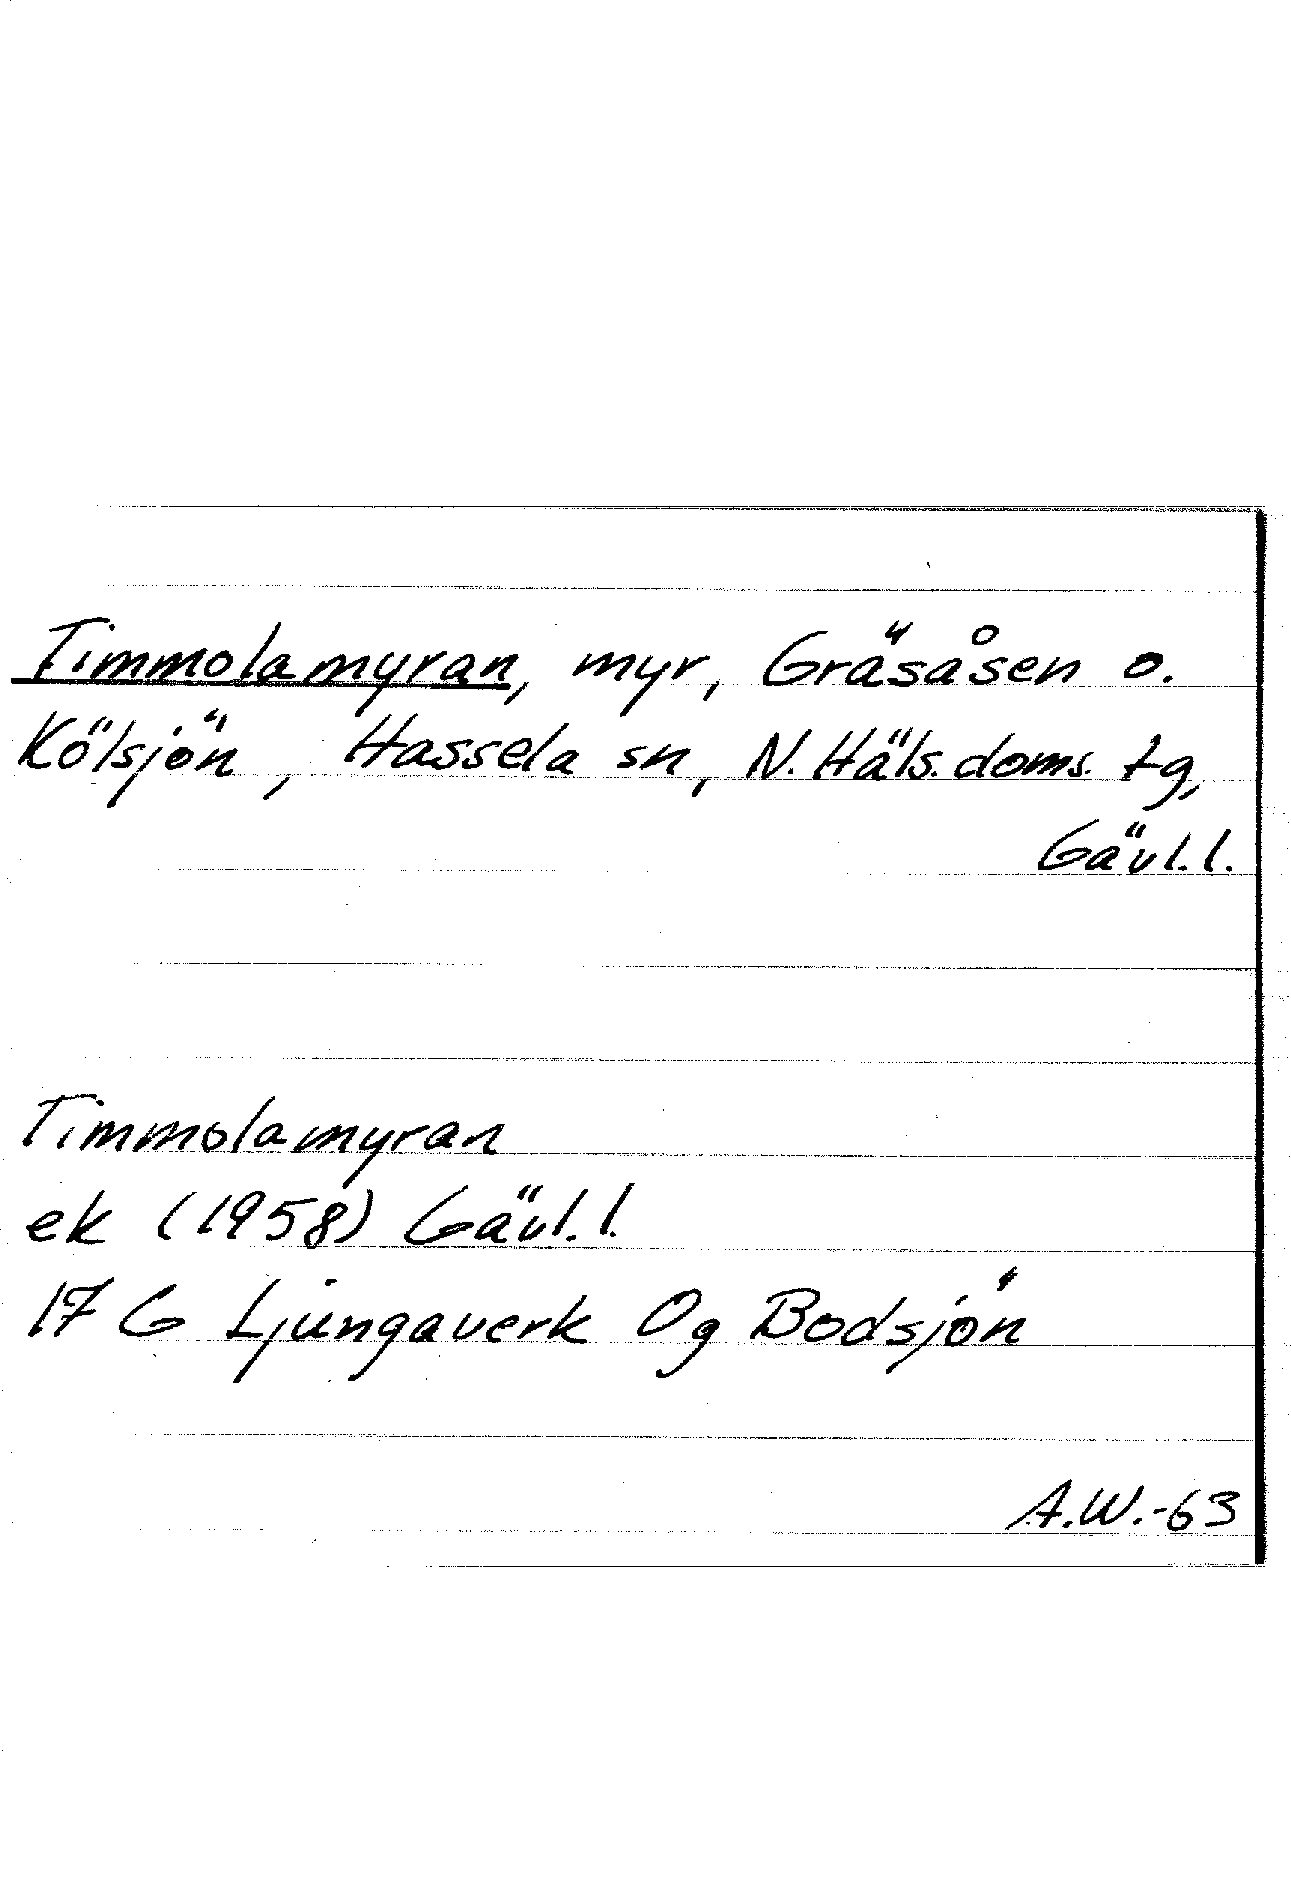 Timmolamyran, myr, Gräsåsen o.
Kölsjön, Hassela sn, N. Häls. doms. tg,
Gävl. l.
Timmolamyran
ek (1958) Gävl. l.
17 G Ljungaverk Og Bodsjön
A.W.-63